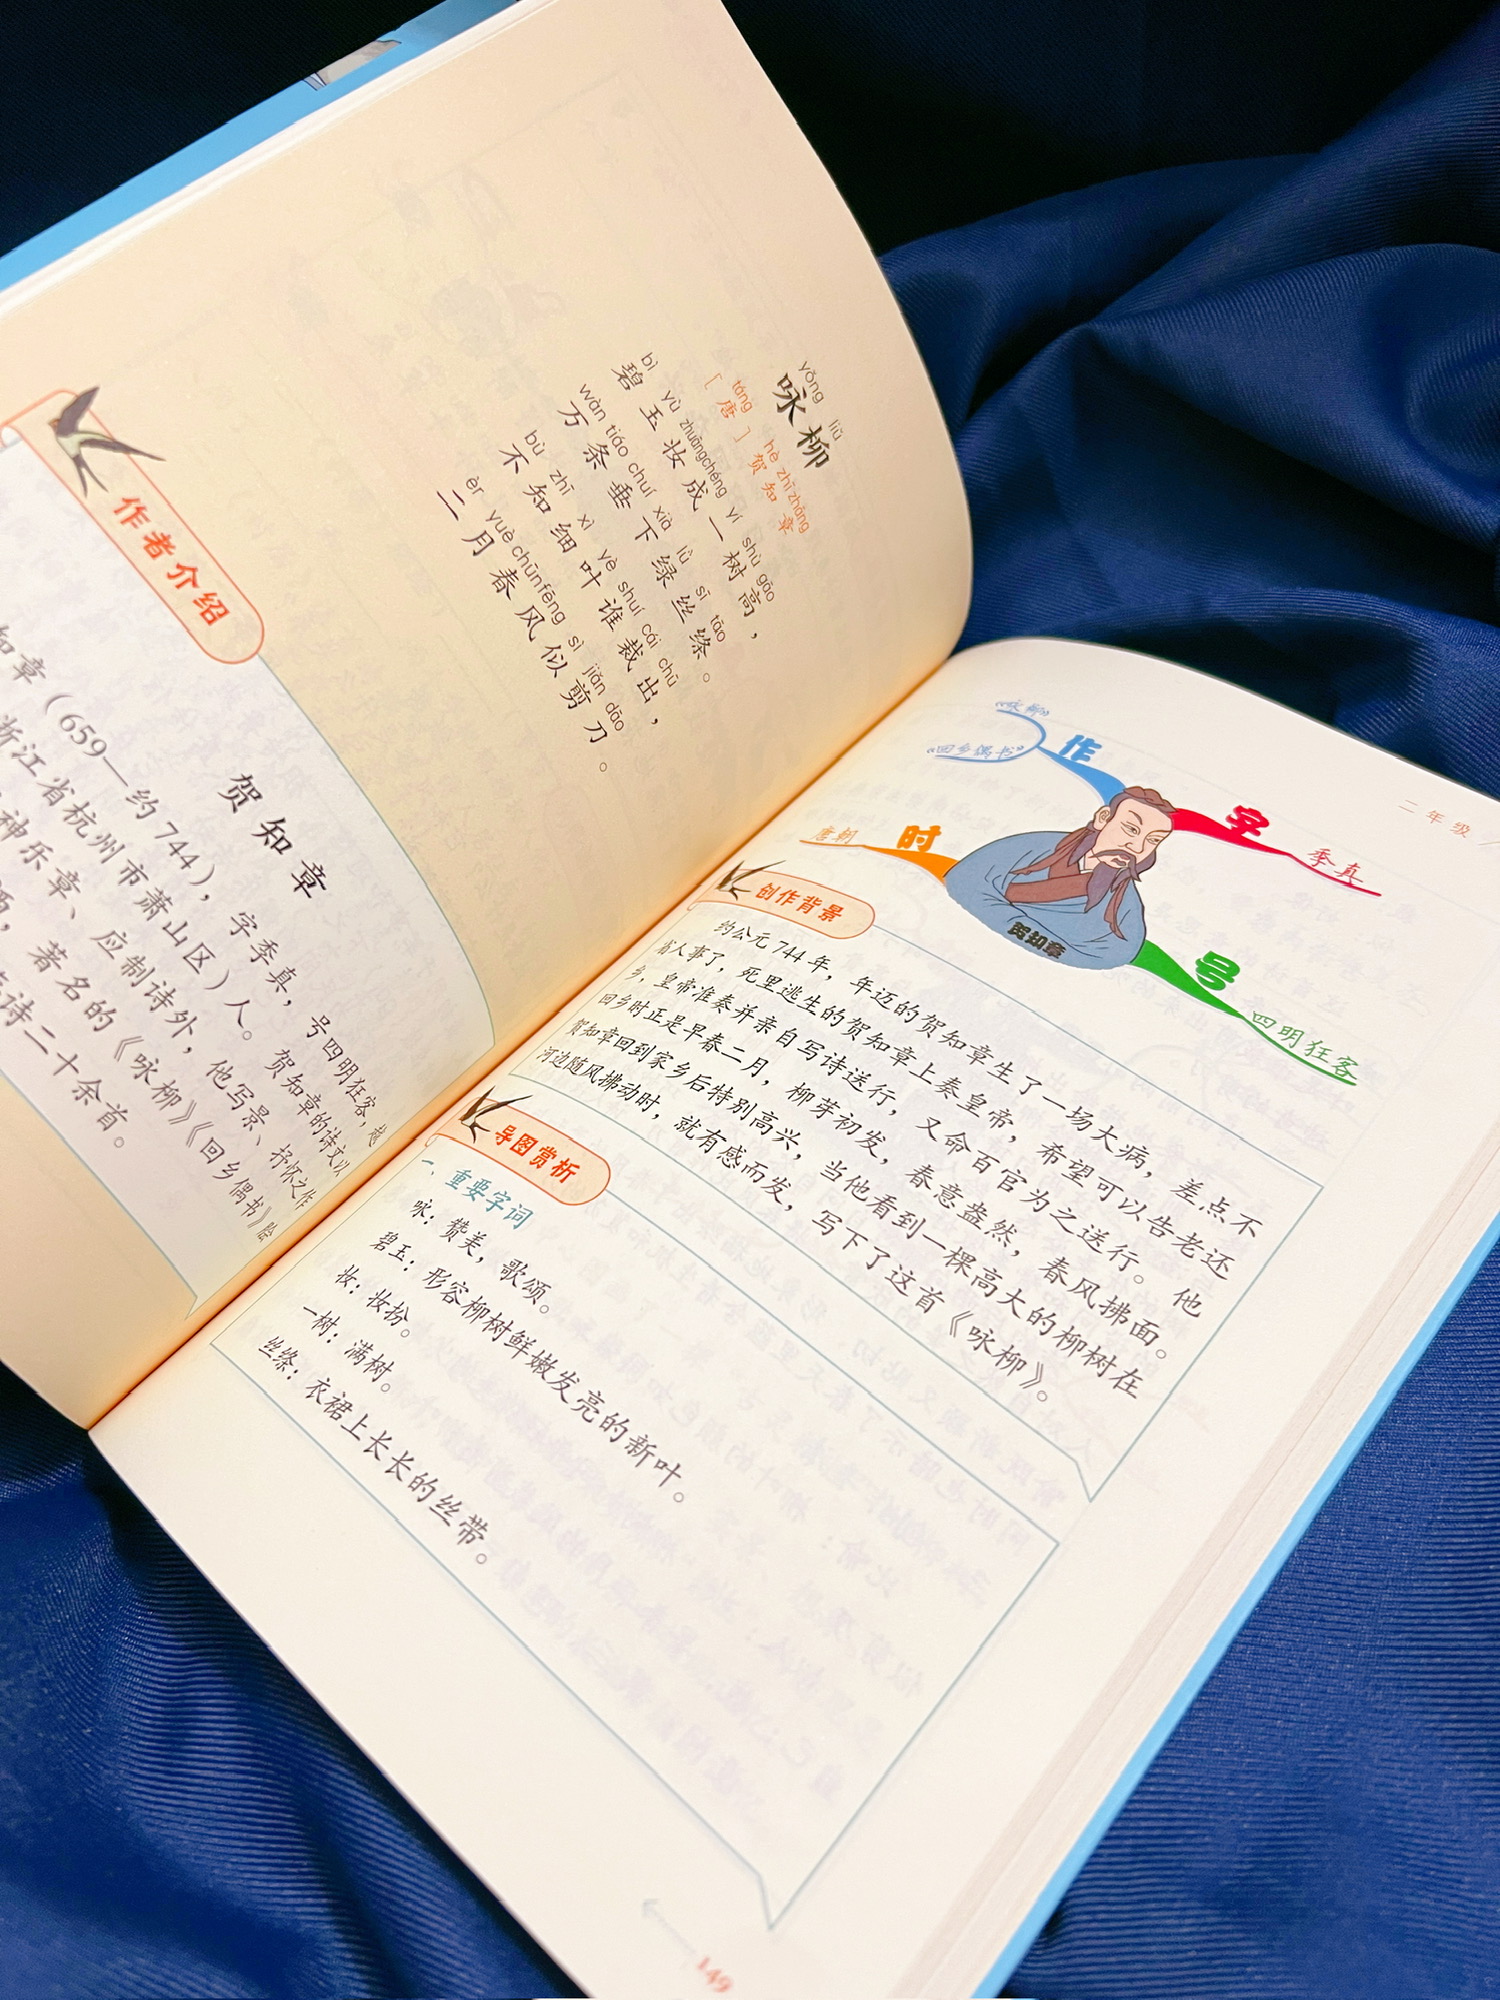 yǒng liǔ
咏柳
táng hè zhī zhāng
[唐] 贺知章
bì yù zhuāngchéng yí shù gāo
碧玉妆成一树高，
wàn tiáo chuí xià lǜ sī tāo
万条垂下绿丝绦。
bù zhī xì yè shuí cái chū
不知细叶谁裁出，
èr yuè chūnfēng sì jiǎn dāo
二月春风似剪刀。
作者介绍
贺知章
知章（659—约744），字季真，号四明狂客，越
浙江省杭州市萧山区）人。贺知章的诗文以
神乐章、应制诗外，他写景、抒怀之作
著名的《咏柳》《回乡偶书》脍
诗二十余首。
二年级
《咏柳》
《回乡偶书》
作
唐朝
时
字
季真
号
四明狂客
贺知章
创作背景
约公元744年，年迈的贺知章生了一场大病，差点不
省人事了，死里逃生的贺知章上奏皇帝，希望可以告老还
乡，皇帝准奏并亲自写诗送行，又命百官为之送行。他
回乡时正是早春二月，柳芽初发，春意盎然，春风拂面。
贺知章回到家乡后特别高兴，当他看到一棵高大的柳树在
河边随风拂动时，就有感而发，写下了这首《咏柳》。
导图赏析
一、重要字词
咏：赞美，歌颂。
碧玉：形容柳树鲜嫩发亮的新叶。
妆：妆扮。
一树：满树。
丝绦：衣裙上长长的丝带。
149